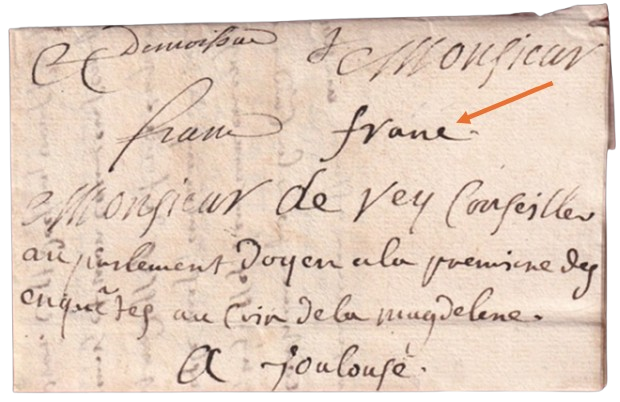 Monsieur
franc franc.
Monsieur de rey Conseiller
au parlement Doyen a la premiere des
enquêtes au Coin de la magdelene.
A Toulouse.